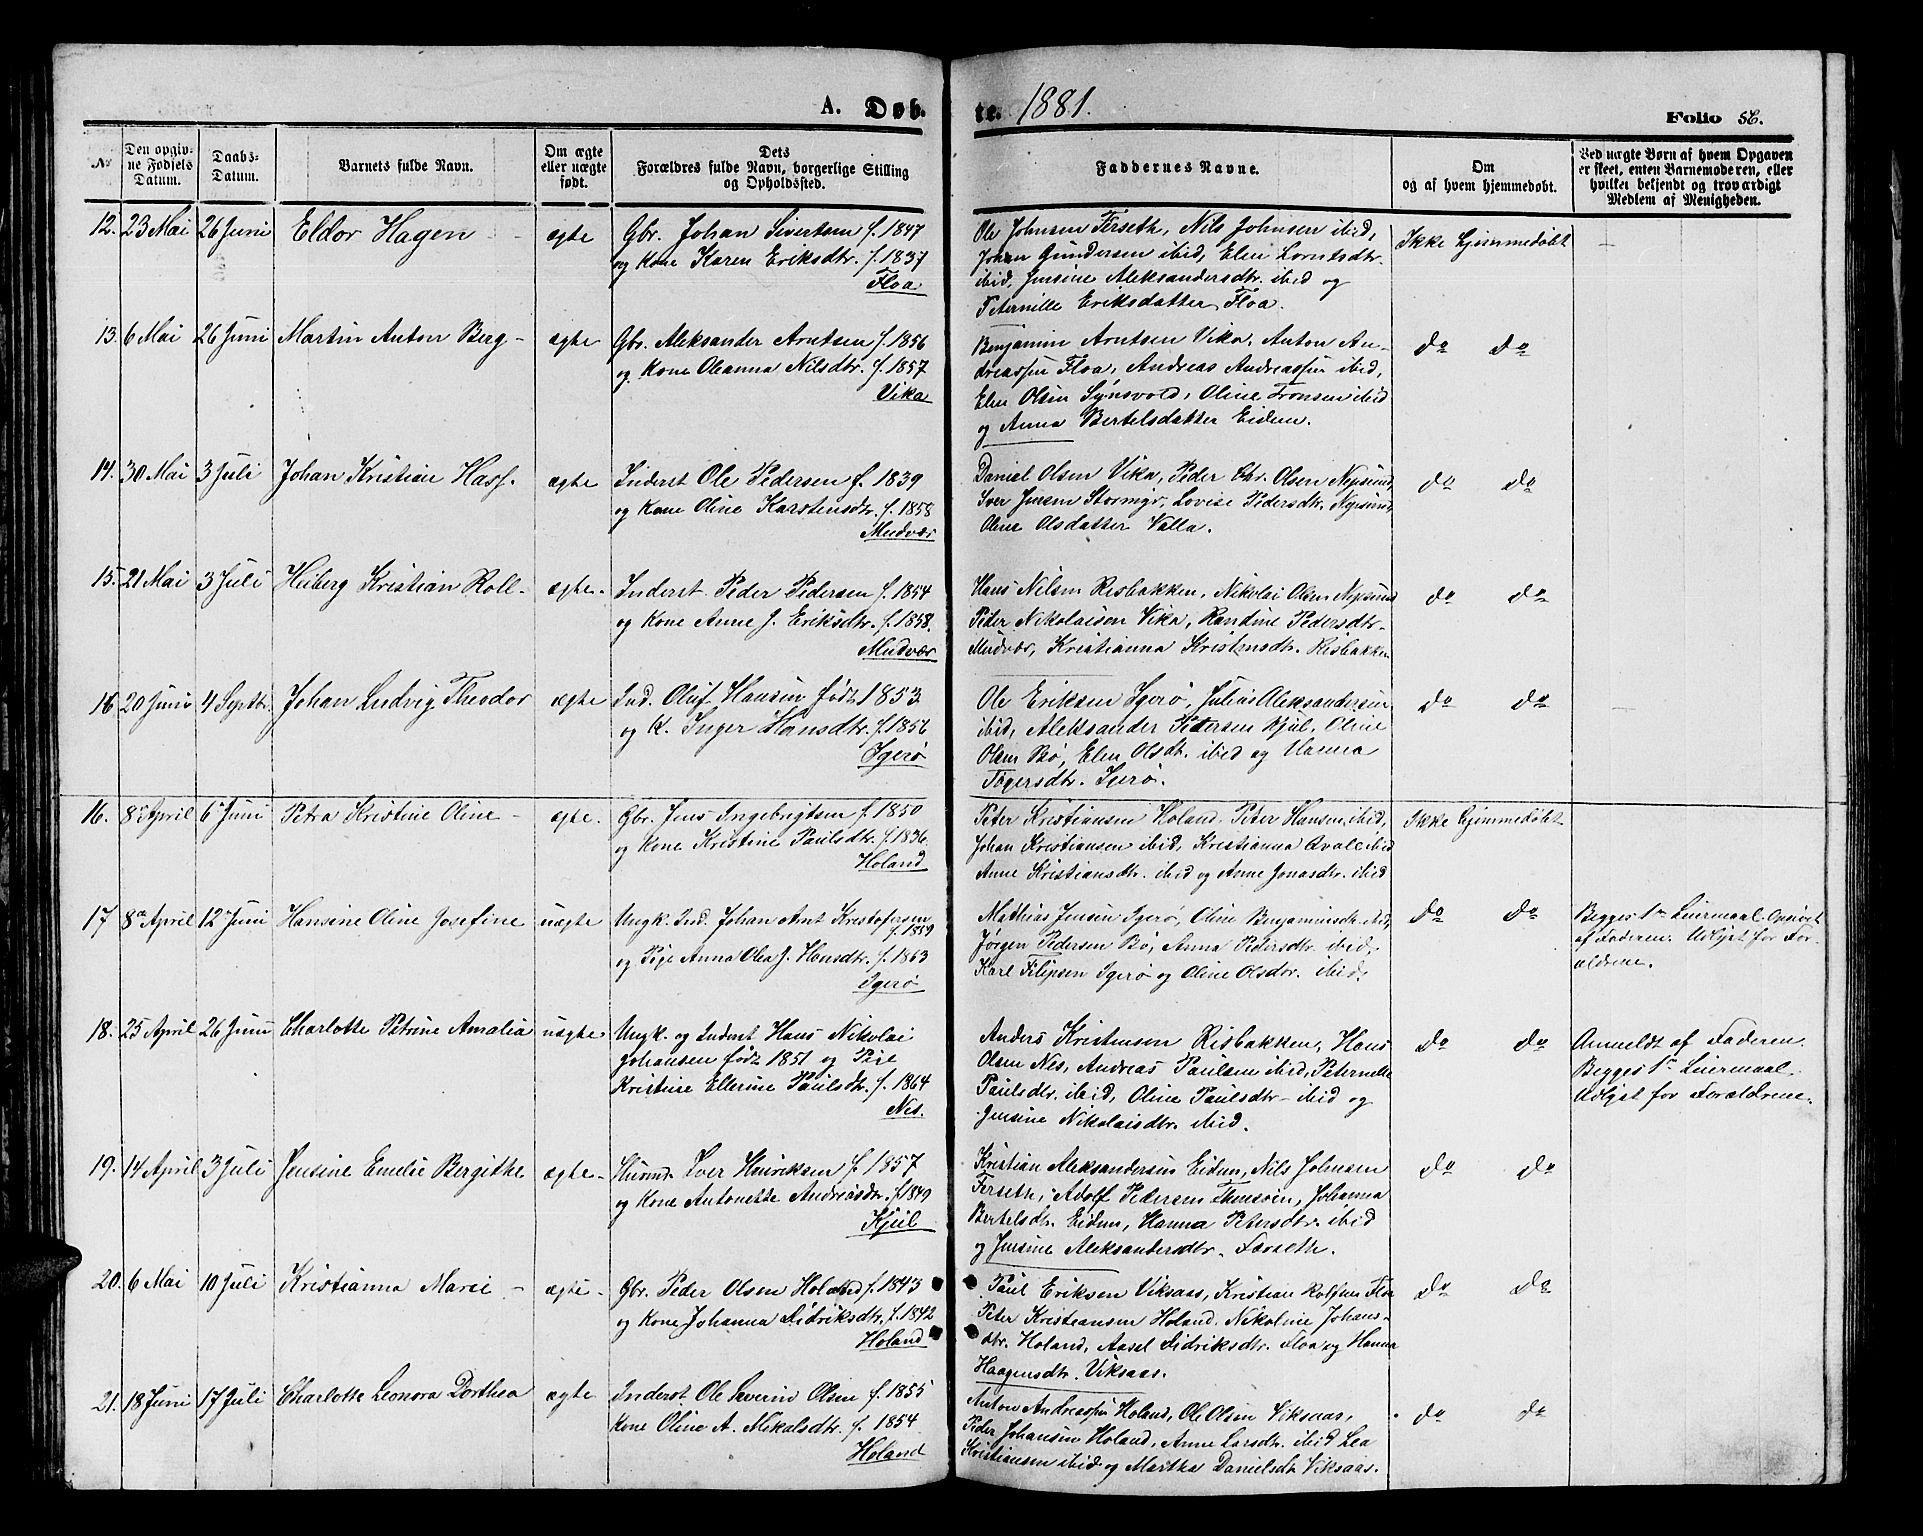 A. Døb- te. 1881.
Folio 56.
No
Den opgiv-
ne Fødsels
Datum.
Daabs-
Datum.
Barnets fulde Navn.
Om ægte
eller uægte
født.
Dets
Forældres fulde Navn, borgerlige Stilling
og Opholdssted.
Faddernes Navne.
Om
og af hvem hjemmedøbt.
Ved uægte Børn af hvem Opgaven
er skeet, enten Barnemoderen, eller
hvilket bekjendt og troværdigt
Medlem af Menigheden.
12. 23 Mai 26 Juni Eldor Hagen - ægte
Gbr. Johan Sivertsen f. 1847
og Kone Karen Eriksdtr. f. 1837
Floa
Ole Johnsen Ferseth, Nils Johnsen ibid,
Johan Gundersen ibid, Elen Lorntsdtr.
ibid, Jensine Aleksandersdtr. ibid og
Peternille Eriksdatter Floa.
Ikke hjemmedøbt -
13. 6 Mai 26 Juni Martin Anton Berg - ægte
Gbr. Aleksander Arntsen f. 1856
og Kone Oleanna Nilsdtr. f. 1857
Vika
Benjamin Arntsen Vika, Anton An-
dreassen Floa, Andreas Andreassen ibid,
Elen Olsen Synsvold, Oline Tronsen ibid
og Anna Bertelsdatter Eidem.
do do
14. 30 Mai 3 Juli Johan Kristian Hass. ægte
Inderst Ole Pedersen f. 1839
og Kone Oline Karstensdtr. f. 1858
Mudvær
Daniel Olsen Vika, Peder Chr. Olsen Nepsund,
Iver Jensen Stormyr, Lovise Pedersdtr. Nepsund,
Oline Olsdatter Valla.
do do
15. 21 Mai 3 Juli Heiberg Kristian Roll- ægte-
Inderst Peder Pedersen f. 1854
og Kone Anne J. Eriksdtr. f. 1858.
Mudvær
Hans Nilsen Risbakken, Nikolai Olsen Nepsund
Peter Nikolaisen Vika, Randine Pedersdtr-
Mudvær, Kristianna Kristensdtr. Risbakken
do do
16 20 Juni 4 Septbr. Johan Ludvig Theodor ægte
Ind. Oluf Hansen født 1853
og K. Inger Hansdtr. f. 1856
Igerø
Ole Eriksen Igerø, Julius Aleksandersen
ibid, Aleksander Pedersen Kjul, Oline
Olsen Bø, Elen Olsdt. ibid og Hanna
Togersdtr. Igerø.
do do -
16. 8de April 6te Juni Petra Kristine Oline - ægte.
Gbr. Jens Ingebrigtsen f. 1850
og Kone Kristine Paulsdtr. f. 1836.
Holand
Peter Kristiansen Holand, Peter Hansen ibid,
Johan Kristiansen ibid, Kristianna Qvale ibid
Anne Kristiansdtr. ibid og Anne Jonasdtr. ibid
Ikke hjemmedøbt
17 8de April 12te Juni Hansine Oline Josefine uægte
Ungk. Ind. Johan Arnt Kristofersen
f. 1859
og Pige Anna Olea J. Hansdtr. f. 1863
Igerø
Mathias Jensen Igerø, Oline Benjaminsdtr. ibid,
Jørgen Pedersen Bø, Anna Pedersdtr. ibid,
Karl Filipsen Igerø og Oline Olsdtr. ibid.
do do
Begges 1ste Leiermaal. Opgivet
af Faderen. Udlyst for For-
ældrene.
18. 25 April 26 Juni Charlotte Petrine Amalia uægte
Ungk. og Inderst Hans Nikolai
Johansen født 1851 og Pige
Kristine Ellerine Paulsdtr. f. 1864
Nes.
Anders Kristensen Risbakken, Hans
Olsen Nes, Andreas Paulsen ibid, Peternelle
Paulsdtr. ibid, Oline Paulsdtr- ibid og
Jensine Nikolaisdtr. ibid.
do do
Anmeldt af Faderen.
Begges 1ste Leiermaal.
Udlyst for Forældrene.
19. 14 April 3 Juli Jensine Emelie Bergithe ægte-
Husmd. Iver Henriksen f. 1857
og Kone Antonette Andreasdtr. f. 1849
Kjul
Kristian Aleksandersen Eidem, Nils Johnsen
Ferseth, Adolf Pedersen Themsøien, Johanna
Bertelsdtr. Eidem, Hanna Petersdtr. ibid
og Jensine Aleksandersdtr. Færseth.
do do
20. 6 Mai 10 Juli Kristianna Marie - ægte-
Gbr. Peder Olsen Holand f. 1843
og Kone Johanna Didriksdtr. f. 1842
Holand
Paul Eriksen Viksaas, Kristian Rolfsen Floa
Peter Kristiansen Holand, Nikoline Johans-
dtr. Holand, Aasel Didriksdtr. Floa og Hanna
Haagensdtr. Viksaas.
do do
21. 18 Juni 17 Juli Charlotte Leonora Dorthea ægte
Inderst Ole Severin Olsen f. 1855
Kone Oline A. Mikalsdtr. f. 1854
Holand
Anton Andreassen Holand, Ole Olsen Viksaas,
Peder Johansen Holand, Anne Larsdtr. ibid Lea
Kristiansen ibid og Martha Danielsdtr Viksaas.
do do